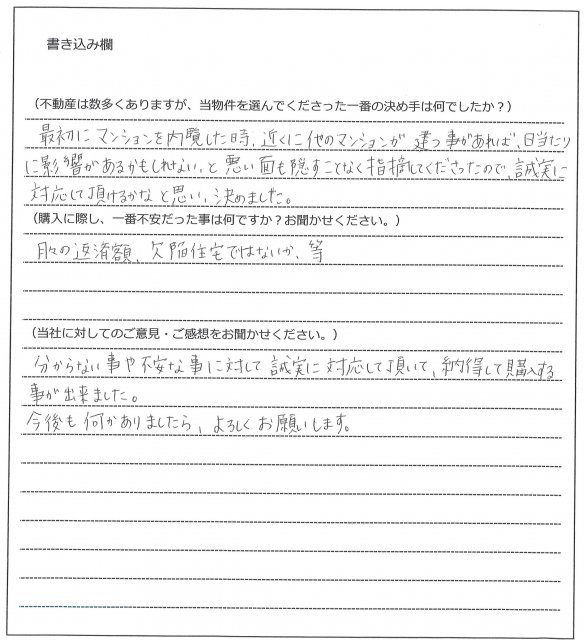 書き込み欄
（不動産は数多くありますが、当物件を選んでくださった一番の決め手は何でしたか？）
最初にマンションを内覧した時、近くに他のマンションが建つ事があれば、日当たり
に影響があるかもしれない、と悪い面も隠すことなく指摘してくださったので、誠実に
対応して頂けるかなと思い、決めました。
（購入に際し、一番不安だった事は何ですか？お聞かせください。）
月々の返済額、欠陥住宅ではないか、等
（当社に対してのご意見・ご感想をお聞かせください。）
分からない事や不安な事に対して誠実に対応して頂いて、納得して購入する
事が出来ました。
今後も何かありましたら、よろしくお願いします。